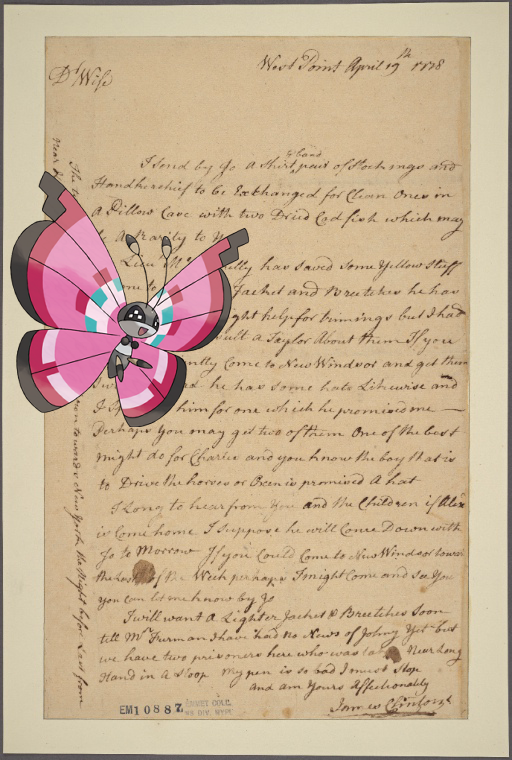 West Point April 19th 1778
Dr Wife
I send by Jo a Shirt, & band pair of Stockings and
Handkerchief to be Exchanged for Clean Ones in
a Pillow Case with two Dried Cod fish which may
be A to
has saved some Yellow Stuff
Jacket and Breetches he has
help for trimings but I had
a Taylor About them If you
Come to New Windsor and get them
he has some hats Likewise and
I him for one which he promised me —
Perhaps you may get two of them One of the best
might do for Charlie and you know the boy that is
to Drive the horses or Oxen is promised A hat
I Long to hear from you and the Children if Alex
is Come home I suppose he will Come Down with
Jo to Morrow If you Could Come to New Windsor
the of the Week perhaps I might Come and See you
you can let me know by Jo
I will want A Lighter Jacket & Breetches Soon
tell Mr Furman I have had no News of Johny Yet but
we have two prisoners here who was Near hong
Hand in A Sloop My pen is so bad I must Stop
and am Yours Affectionately
James Clinton
towards New York the Night before Last from
EM10887
EMMET COLL.
MS DIV. NYPL